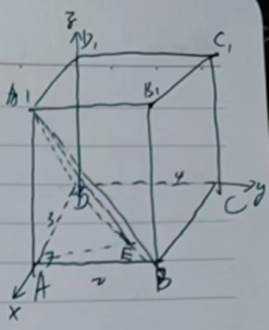 z
D₁
C₁
A₁
B₁
D
4
y
C
3
E
A
2
B
x